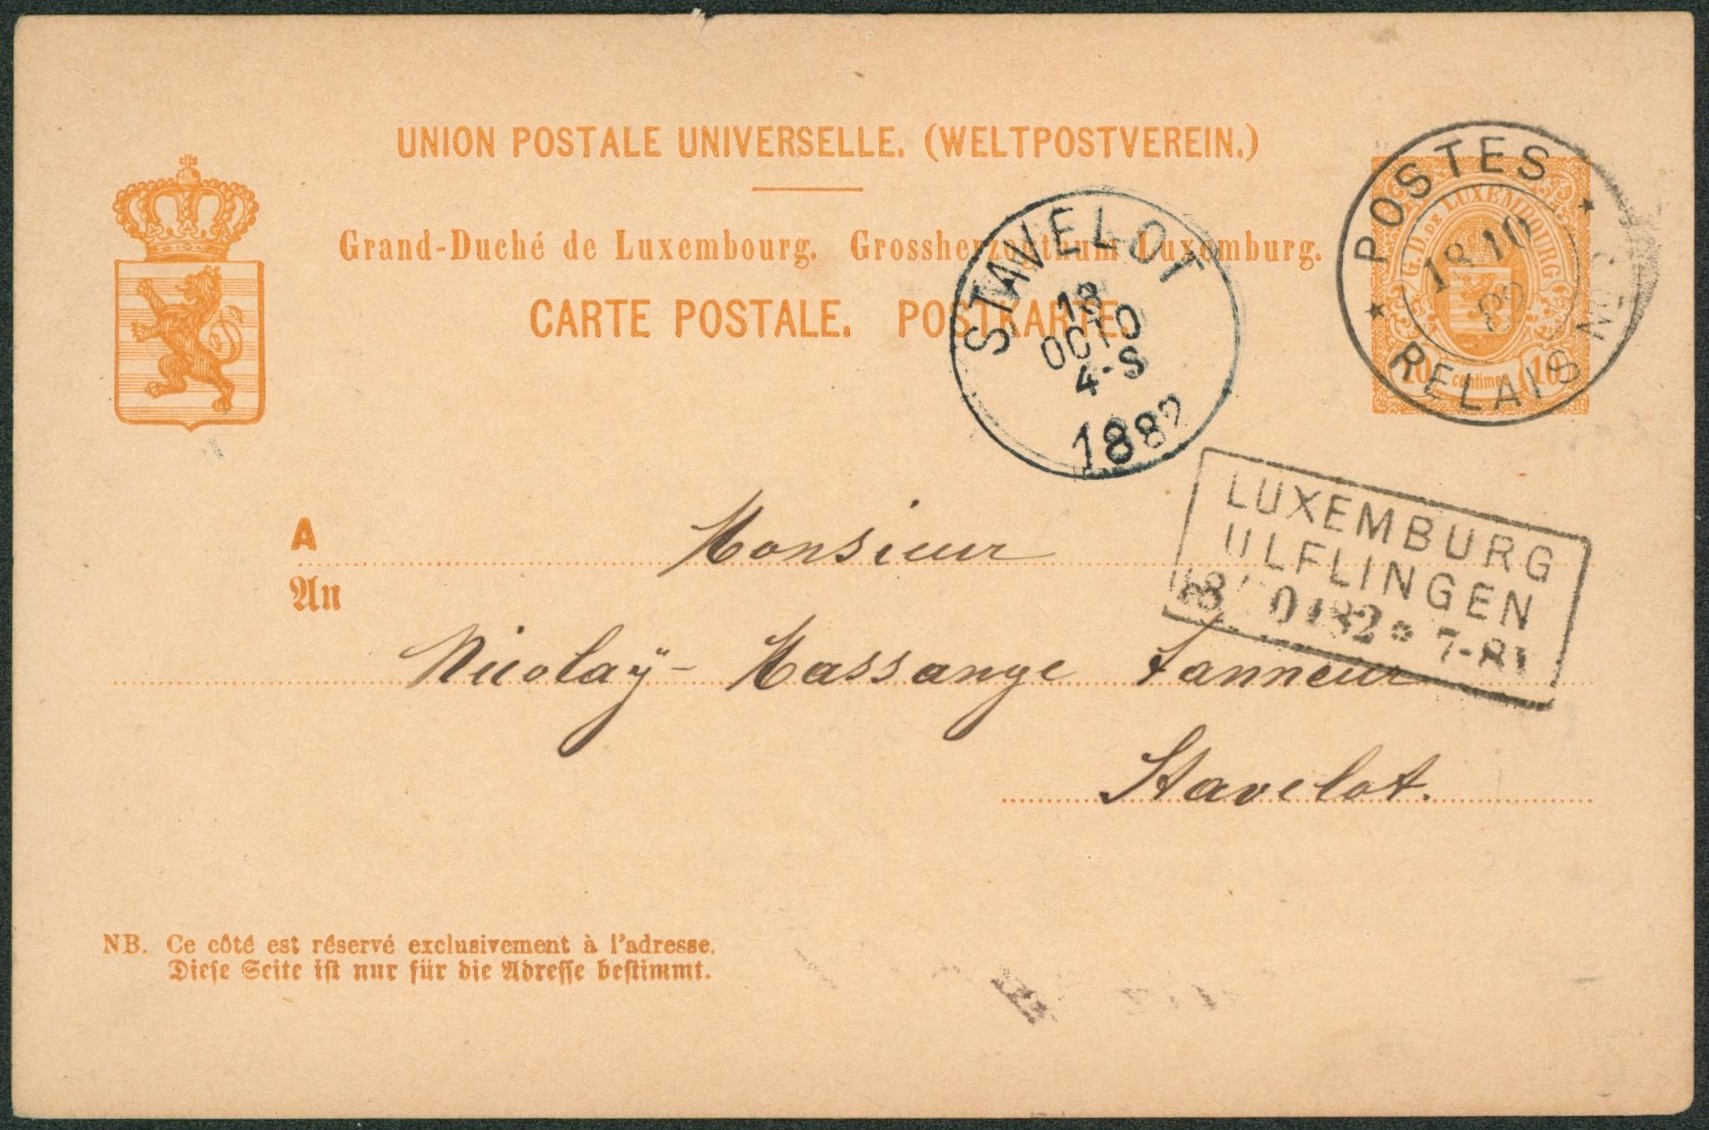 UNION POSTALE UNIVERSELLE. (WELTPOSTVEREIN.)
Grand-Duché de Luxembourg. Grossherzogthum Luxemburg.
CARTE POSTALE. POSTKARTE.
G. D. DE LUXEMBOURG
10 centimes 10
POSTES
18.10
82
RELAIS No
STAVELOT
18
OCTO
4-S
1882
LUXEMBURG
ULFLINGEN
7-8
A
An
Monsieur
Nicolaÿ-Massange Tanneur
Stavelot.
NB. Ce côté est réservé exclusivement à l'adresse.
Diese Seite ist nur für die Adresse bestimmt.